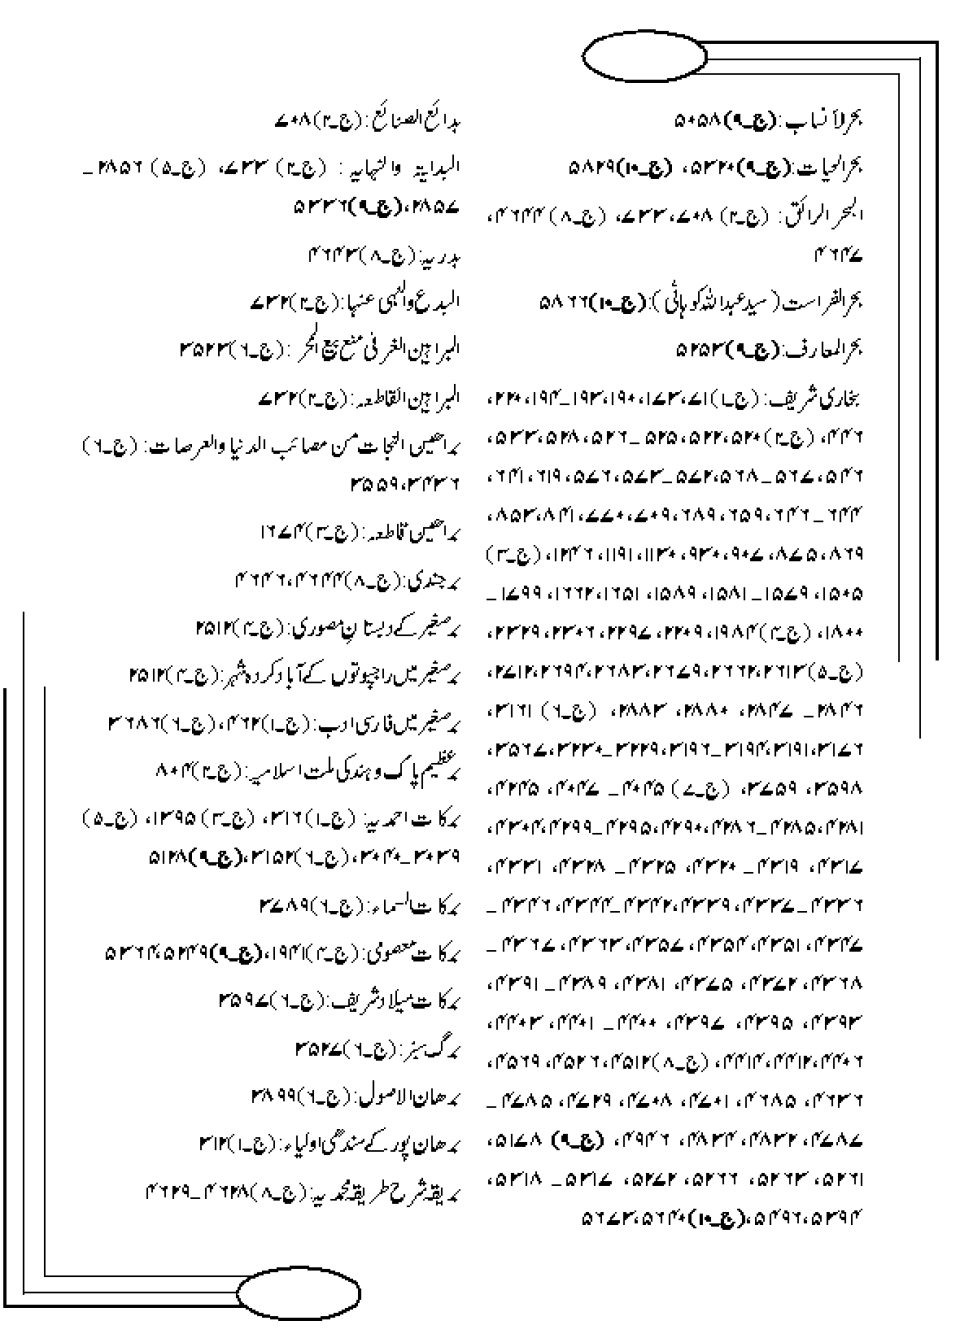 بحرالأنساب:(ج۔۹)۵۰۵۸
بحرالحیات:(ج۔۹)۵۳۲۰، (ج۔۱۰)۵۸۲۹
البحر الرائق: (ج۔۲) ۷۰۸،۷۳۳، (ج۔۸) ۴۶۴۴،
۴۶۴۷
بحرالفراست(سیدعبداللہ کوہاٹی):(ج۔۱۰)۵۸۶۶
بحرالمعارف:(ج۔۹)۵۲۵۳
بخاری شریف: (ج۔۱)۷۱،۱۷۳،۱۹۰،۱۹۳۔۱۹۴،۲۲۰،
۴۴۶، (ج۔۲)۵۲۰،۵۲۲،۵۲۵۔۵۲۶،۵۲۸،۵۳۳،
۵۴۶،۵۶۷۔۵۶۸،۵۷۲۔۵۷۳،۵۷۶،۶۱۹،۶۴۱،
۶۴۴۔۶۴۶،۶۵۹،۶۸۹،۷۰۹،۷۷۰،۸۴۱،۸۵۳،
۸۶۹،۸۷۵،۹۰۷،۹۳۰،۱۱۳۰،۱۱۹۱،۱۲۴۶، (ج۔۳)
۱۵۰۵،۱۵۷۹۔۱۵۸۱،۱۵۸۹،۱۶۵۱،۱۶۶۲،۱۷۹۹۔
۱۸۰۰، (ج۔۴)۱۹۸۴،۲۲۰۹،۲۲۹۷،۲۳۰۶،۲۳۲۹،
(ج۔۵)۲۶۱۳،۲۶۶۲،۲۶۷۹،۲۶۸۳،۲۶۹۴،۲۷۱۲،
۲۸۴۶۔ ۲۸۴۷، ۲۸۸۰، ۲۸۸۳، (ج۔۶) ۳۱۶۱،
۳۱۷۶،۳۱۹۱،۳۱۹۴۔۳۱۹۶،۳۲۲۹۔۳۲۳۰،۳۵۶۷،
۳۵۹۸، ۳۷۵۹، (ج۔۷) ۴۰۴۵۔ ۴۰۴۷، ۴۲۴۵،
۴۲۸۱،۴۲۸۵۔۴۲۸۶،۴۲۹۰،۴۲۹۵۔۴۲۹۹،۴۳۰۴،
۴۳۱۷، ۴۳۱۹۔ ۴۳۲۰، ۴۳۲۵۔ ۴۳۲۸، ۴۳۳۱،
۴۳۳۶۔۴۳۳۷،۴۳۳۹،۴۳۴۲۔۴۳۴۴،۴۳۴۶۔
۴۳۴۷، ۴۳۵۱، ۴۳۵۴، ۴۳۵۷، ۴۳۶۳، ۴۳۶۷۔
۴۳۶۸، ۴۳۷۲، ۴۳۷۵، ۴۳۸۱، ۴۳۸۹۔ ۴۳۹۱،
۴۳۹۳، ۴۳۹۵، ۴۳۹۷، ۴۴۰۰۔ ۴۴۰۱، ۴۴۰۳،
۴۴۰۶،۴۴۱۲،۴۴۱۴، (ج۔۸)۴۵۱۲،۴۵۲۶،۴۵۶۹،
۴۶۳۶، ۴۶۸۵، ۴۷۰۱، ۴۷۰۸، ۴۷۲۹، ۴۷۸۵۔
۴۷۸۷، ۴۸۲۲، ۴۸۳۴، ۴۹۴۶، (ج۔۹) ۵۱۷۸،
۵۲۶۱، ۵۲۶۳، ۵۲۶۶، ۵۲۷۲، ۵۳۱۷۔ ۵۳۱۸،
۵۳۹۴،۵۴۹۶، (ج۔۱۰)۵۶۴۰،۵۶۷۳
بدائع الصنائع:(ج۔۲)۷۰۸
البدایۃ والنہایہ : (ج۔۲) ۷۳۳، (ج۔۵) ۲۸۵۶۔
۲۸۵۷، (ج۔۹)۵۳۳۶
بدریہ:(ج۔۸)۴۶۴۳
البدع والنہی عنہا:(ج۔۲)۷۳۲
البراہین الغر فی منع بیع الحر :(ج۔۶)۳۵۲۳
البراہین القاطعہ:(ج۔۲)۷۳۲
براھین النجات من مصائب الدنیا والعرصات: (ج۔۶)
۳۴۳۶،۳۵۵۹
براھین قاطعہ:(ج۔۳)۱۶۷۴
برجندی:(ج۔۸)۴۶۴۴،۴۶۴۶
برصغیر کے دبستانِ مصوری:(ج۔۴)۲۵۱۲
برصغیر میں راجپوتوں کے آباد کردہ شہر:(ج۔۴)۲۵۱۲
برصغیر میں فارسی ادب:(ج۔۱)۴۶۲، (ج۔۶)۳۶۸۶
برعظیم پاک و ہند کی ملت اسلامیہ:(ج۔۲)۸۰۴
برکات احمدیہ: (ج۔۱)۳۱۶، (ج۔۳)۱۳۹۵، (ج۔۵)
۳۰۳۹۔۳۰۴۰، (ج۔۶)۳۱۵۲، (ج۔۹)۵۱۲۸
برکات السماء:(ج۔۶)۳۷۸۹
برکات معصومی:(ج۔۴)۱۹۴۱، (ج۔۹)۵۲۴۹،۵۳۶۴
برکات میلاد شریف:(ج۔۶)۳۵۹۷
برگ سبز:(ج۔۶)۳۵۲۷
برھان الاصول:(ج۔۶)۳۸۹۹
برھان پور کے سندھی اولیاء:(ج۔۱)۳۱۲
بریقہ شرح طریقہ محمدیہ:(ج۔۸)۴۶۲۸۔۴۶۲۹